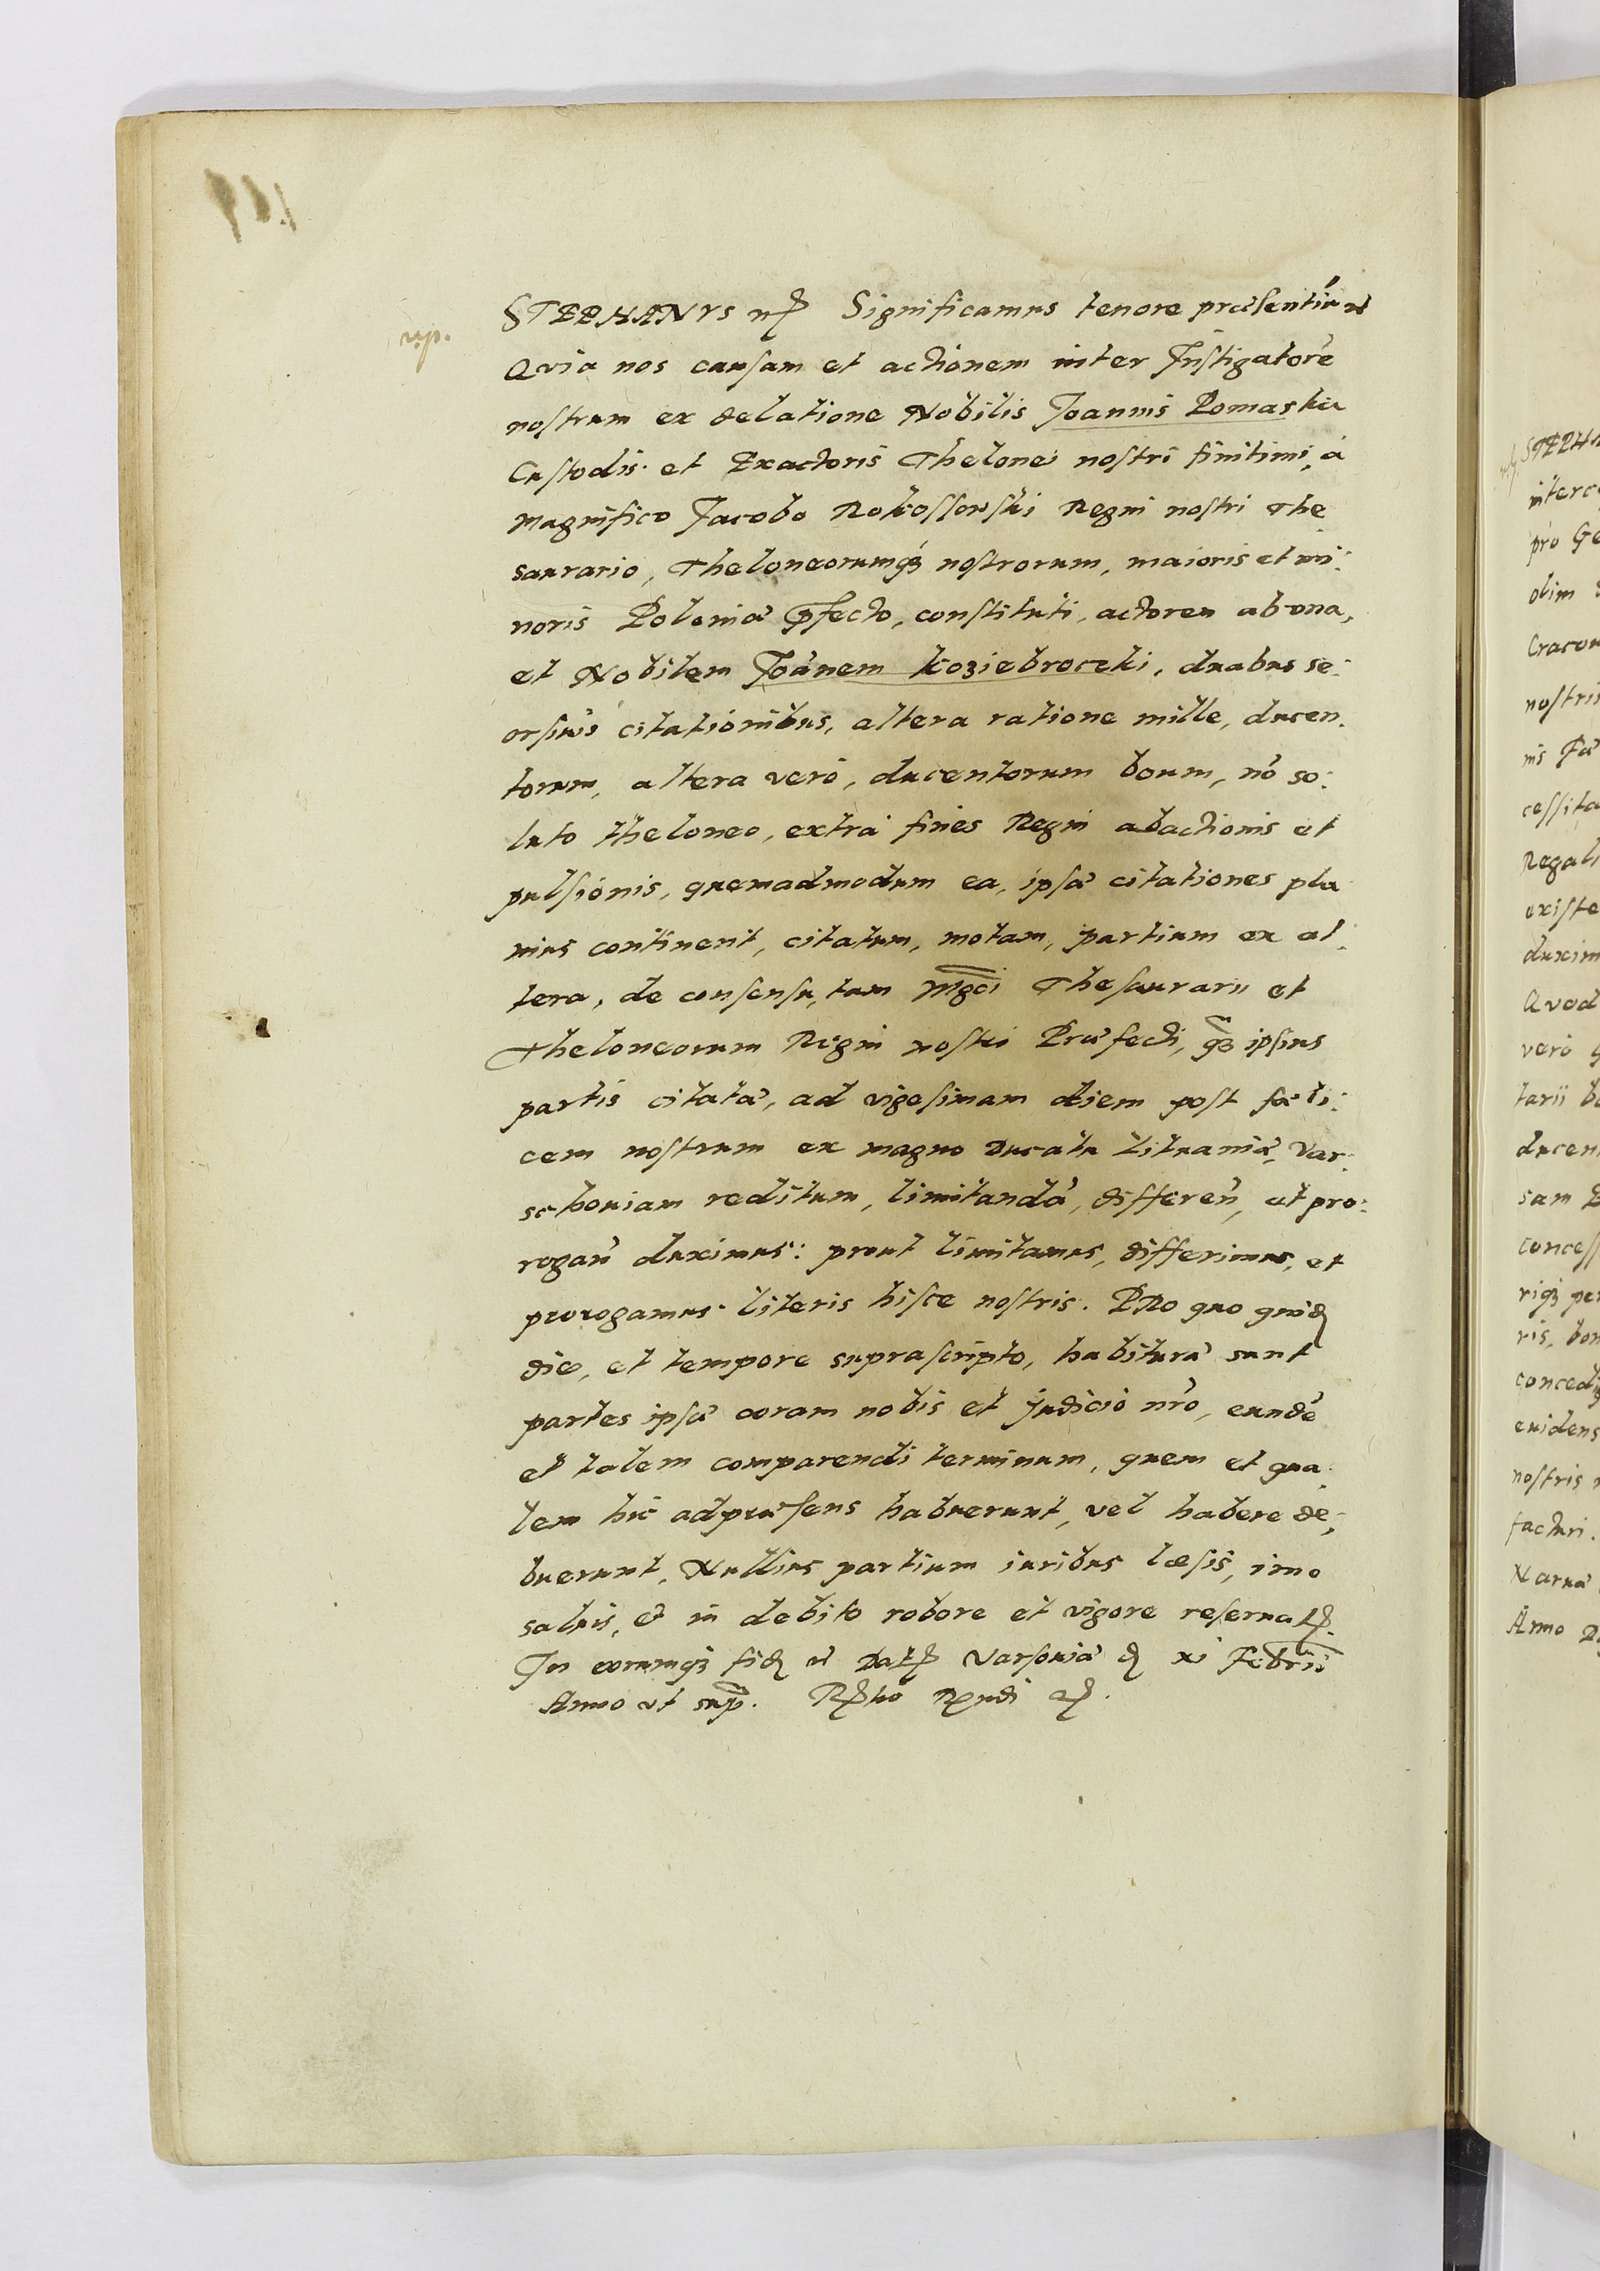 STEPHANVS Significamus tenore præsentiū
Qvia nos causam et actionem inter Instigatorē
nostrum ex delatione Nobilis Joannis Pomaski
Custodis et Exactoris Thelonei nostri finitimi, à
magnifico Jacobo Rokossowski Regni nostri The
saurario, Theloneorumq3 nostrorum, maioris et mi:
noris Poloniæ Pfecto, constituti, actorem ab vna,
et Nobilem Joānem Koziebroczki, duabus se:
orsiuis citationibus, altera ratione mille, ducen.
torum, altera verò, ducentorum boum, nō so:
luto theloneo, extrà fines Regni abactionis et
pulsionis, quemadmodum ea, ipsæ citationes ple
nius continent, citatum, motam, partium ex al.
tera, de consensu, tam Mgci Thesaurarii et
Theloneorum Regni nostri Præfecti, q3 ipsius
partis citatæ, ad vigesimam diem post fæli:
cem nostrum ex magno Ducatu Lituaniæ, Var:
schouiam reditum, limitandā, differeñ, et pro:
rogañ duximus: prout limitamus, differimus, et
prorogamus literis hisce nostris. PRo quo quid
die, et tempore suprascripto, habituræ sunt
partes ipsæ coram nobis et judicio nrō, eundē
et talem comparendi terminum, quem et qua.
lem hic ad præsens habuerunt, vel habere de:
buerunt, Nullius partium iuribus læsis, imo
saluis, et in debito robore et vigore reseruat.
In eorumq3 fid Dat Varsouiæ d xi Febrii
Anno vt sup.
STEPHA
interc
pro Ge
olim
Cracou
nostri
nis Fa
cessita
Regali
existe
duxim
Qvod
verò
tarii bo
ducen
sam
concess
riq3 per
ris, bon
conced
euidens
nostris
facturi.
Narua
Anno